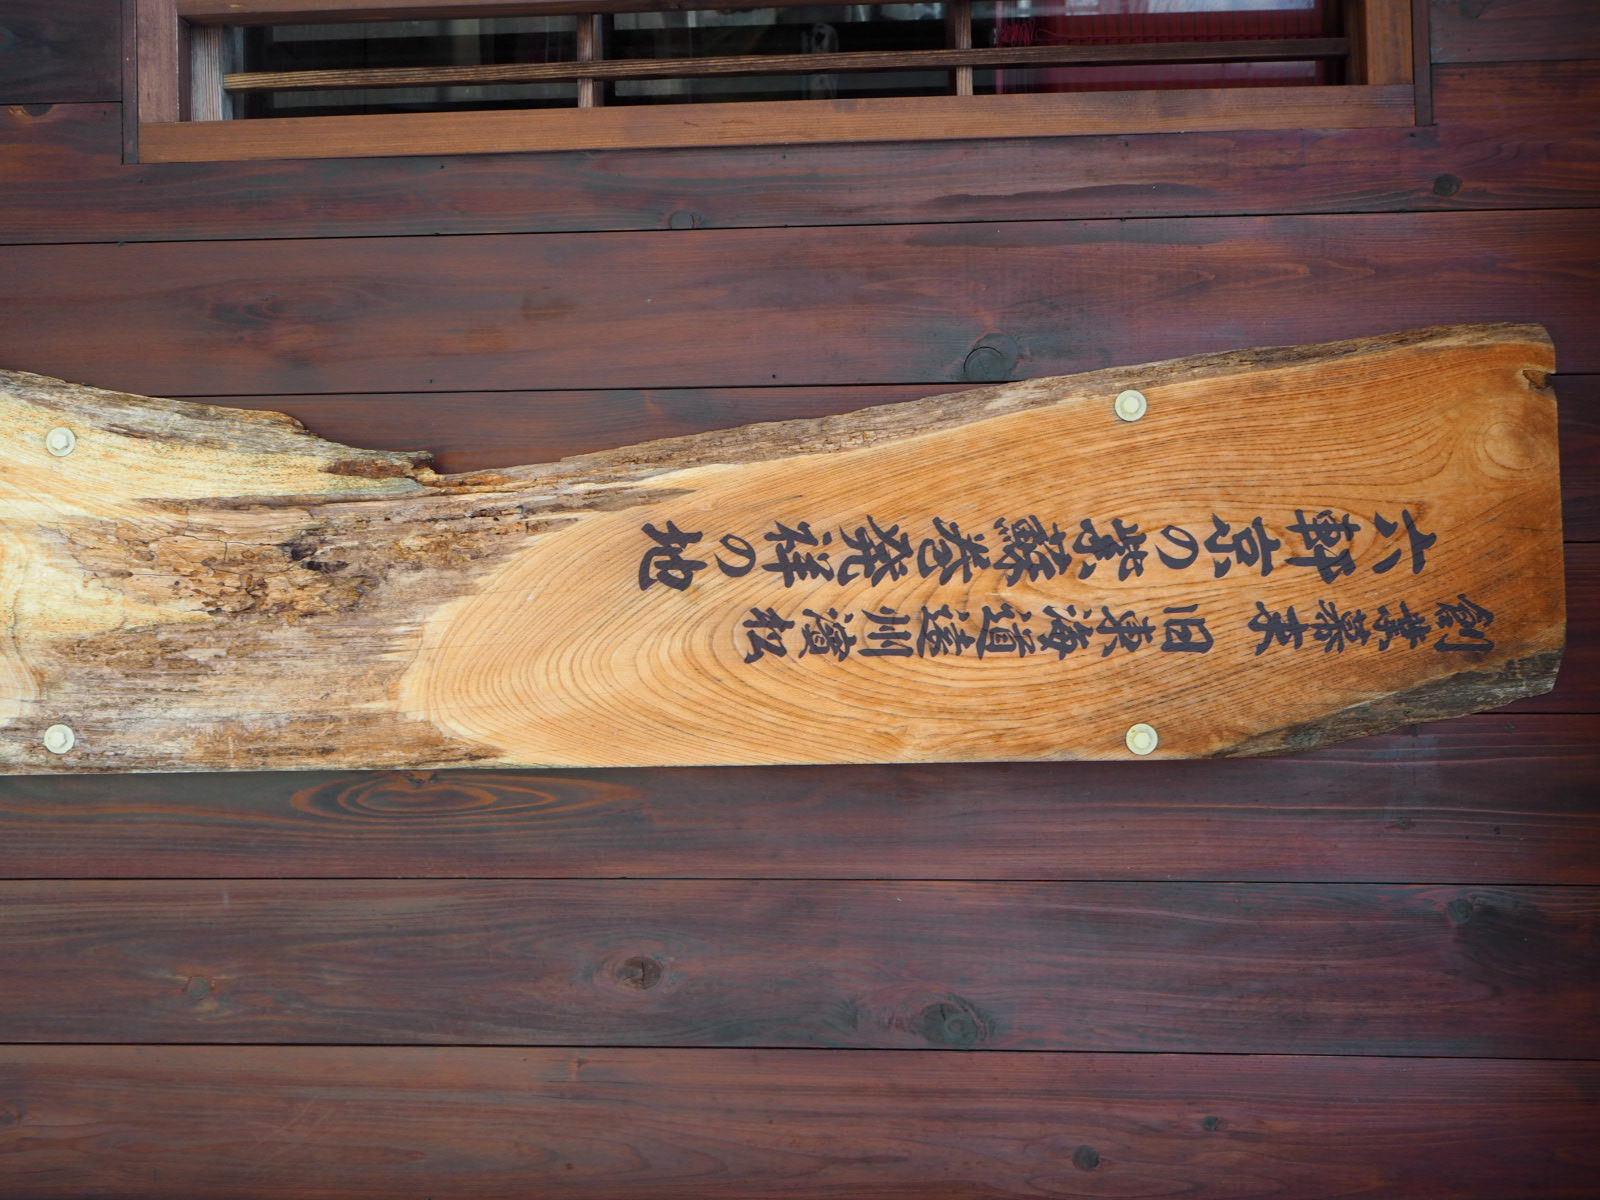 創業幕末 旧東海道遠州濱松
六軒京の紫蘇巻発祥の地